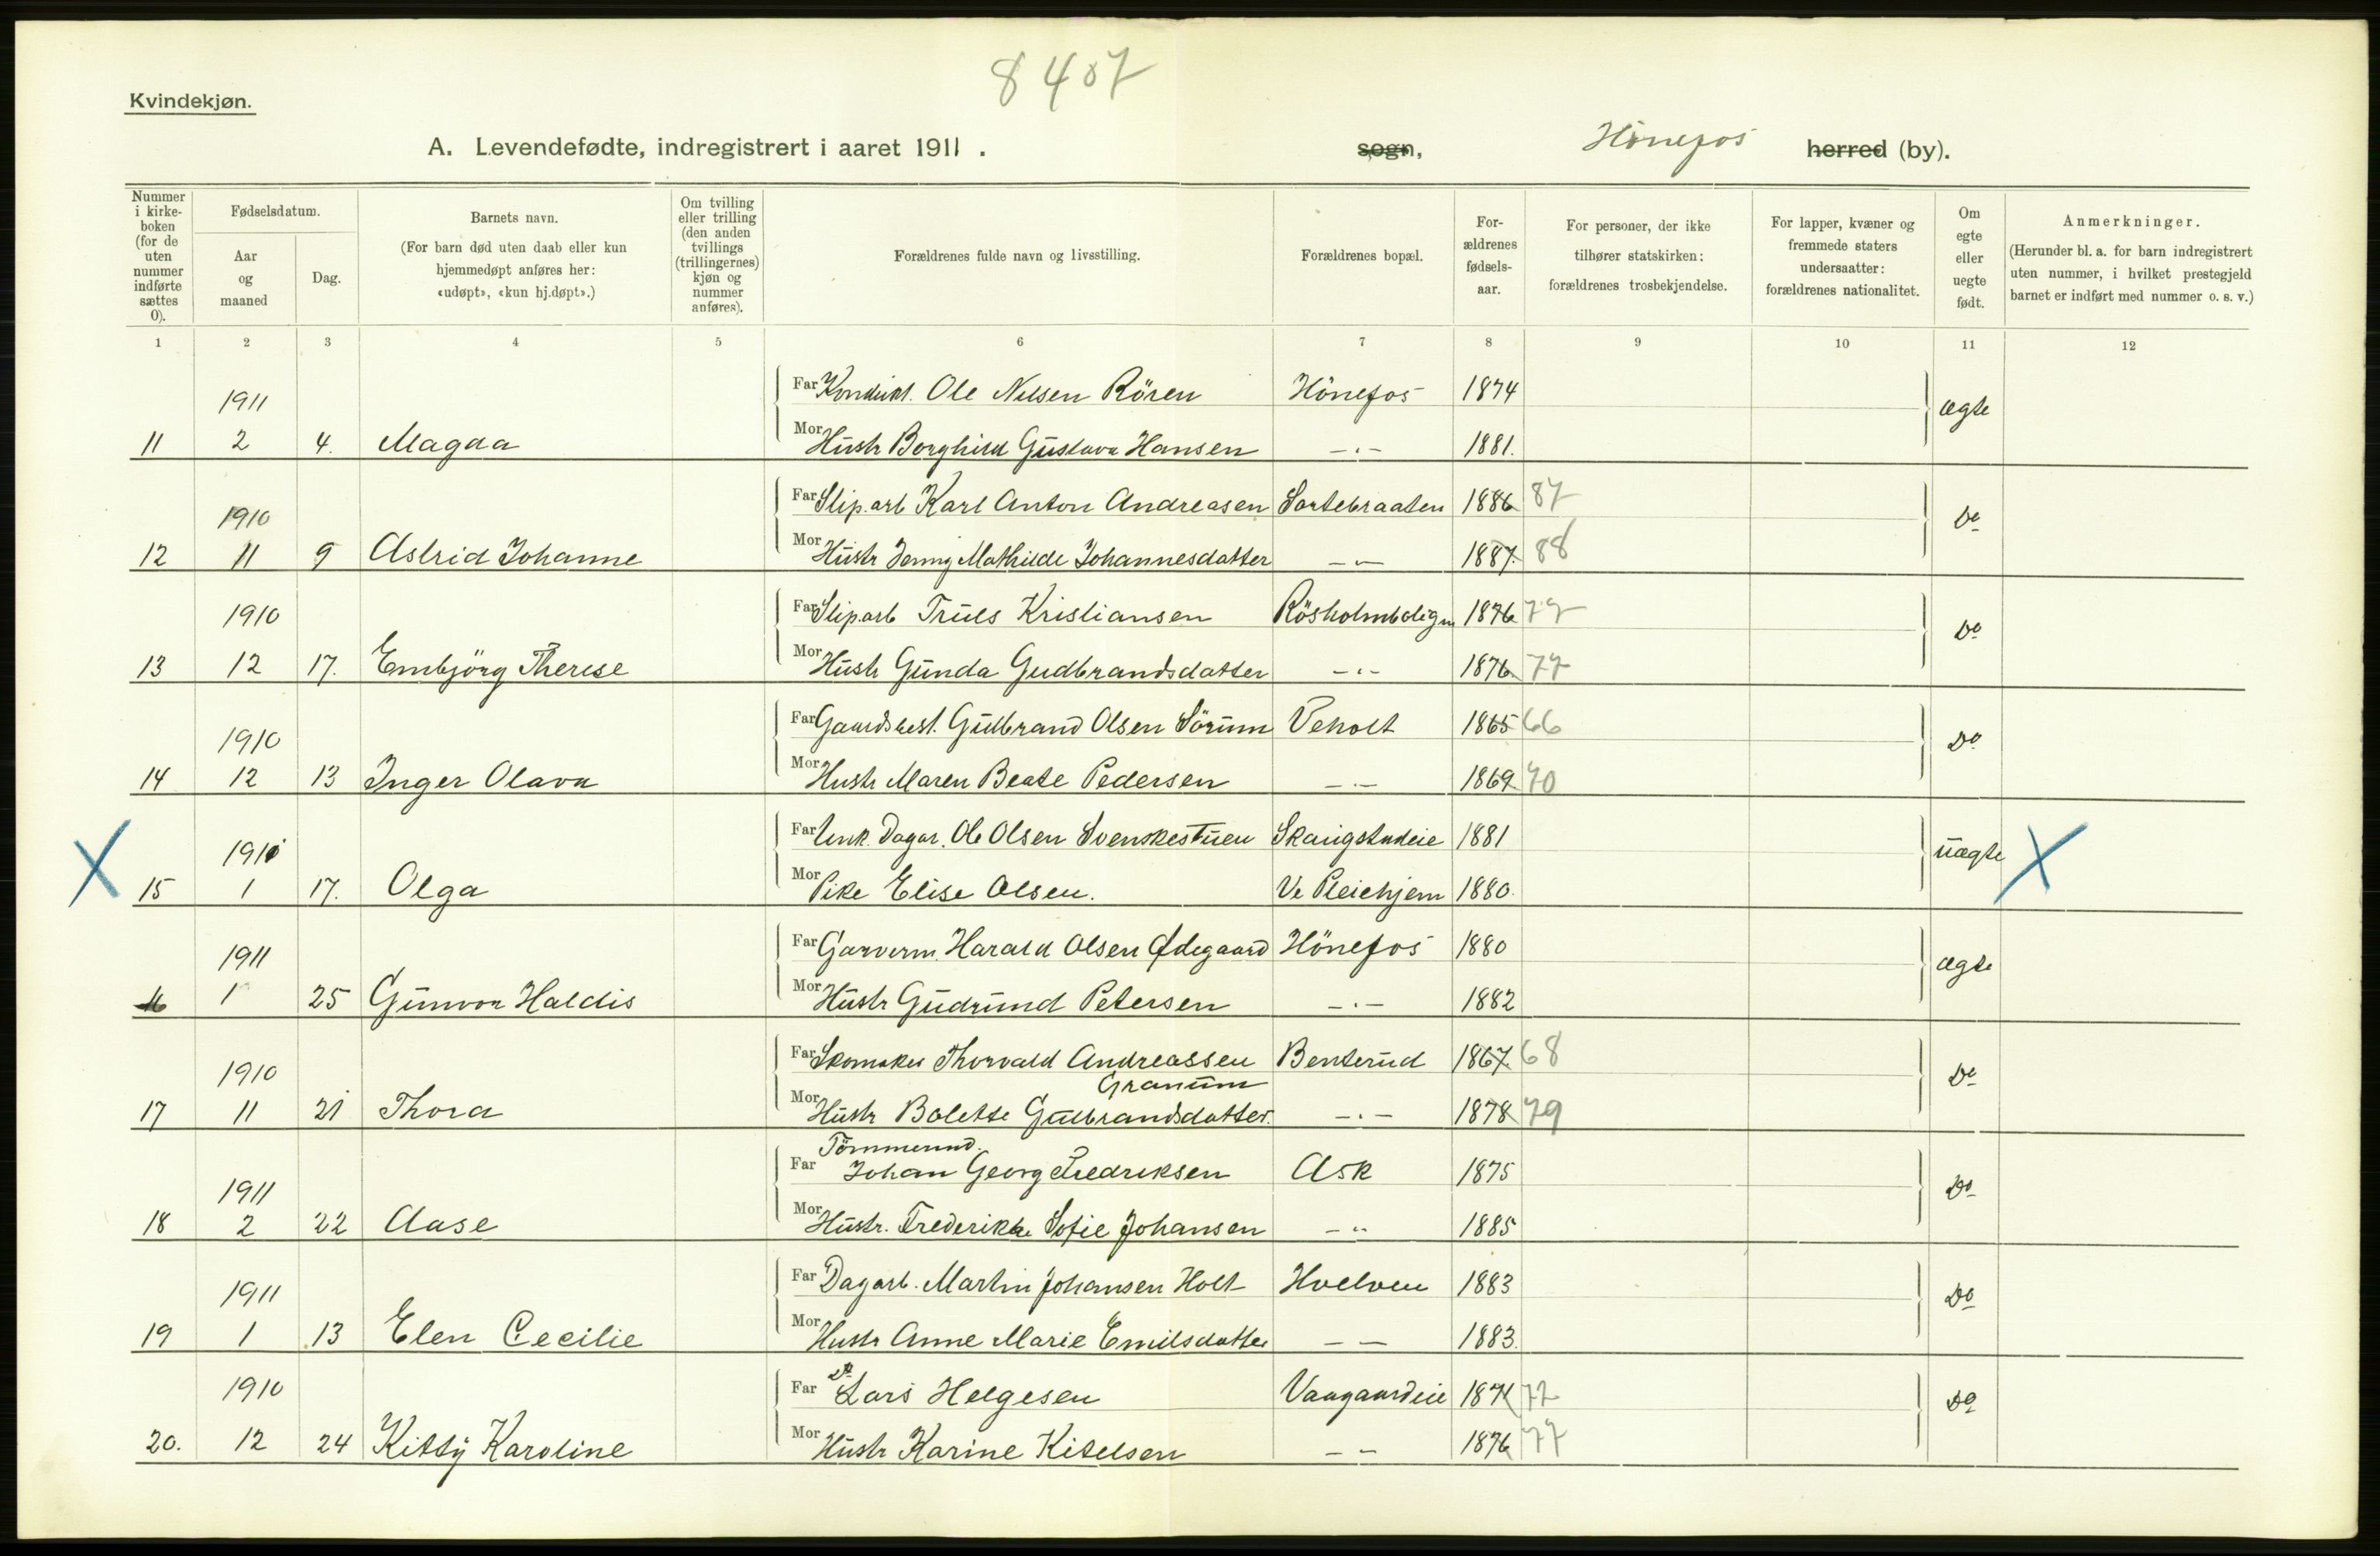 8407
Kvindekjøn.
A. Levendefødte, indregistrert i aaret 1911 .
sogn, Hönefos herred (by).
Nummer i kirkeboken (for de uten nummer indførte sættes 0).
Fødselsdatum.
Aar og maaned
Dag.
Barnets navn.
(For barn død uten daab eller kun hjemmedøpt anføres her: «udøpt», «kun hj.døpt».)
Om tvilling eller trilling (den anden tvillings (trillingernes) kjøn og nummer anføres).
Forældrenes fulde navn og livsstilling.
Forældrenes bopæl.
Forældrenes fødselsaar.
For personer, der ikke tilhører statskirken: forældrenes trosbekjendelse.
For lapper, kvæner og fremmede staters undersaatter: forældrenes nationalitet.
Om egte eller uegte født.
Anmerkninger.
(Herunder bl. a. for barn indregistrert uten nummer, i hvilket prestegjeld barnet er indført med nummer o. s. v.)
1 2 3 4 5 6 7 8 9 10 11 12
1911 Far Kondukt. Ole Nilsen Rören Hönefos 1874 ægte
11 2 4. Magda Mor Hustr Borghild Gustava Hansen -"- 1881.
1910 Far Slip.arb Karl Anton Andreasen Sortebraaten 1886 87 Do
12 11 9 Astrid Johanne Mor Hustr Jenny Mathilde Johannesdatter -"- 1887. 88
1910 Far Sliparb Truls Kristiansen Rösholmbolign 1876 77 Do
13 12 17. Embjörg Therese Mor Hustr Gunda Gudbrandsdatter -"- 1876 77
1910 Far Gaardbest. Gulbrand Olsen Sörum Veholt 1865 66 Do
14 12 13 Inger Olava Mor Hustr Maren Beate Pedersen -"- 1869 70
1911 Far Unk. Dagar. Ole Olsen Svenskestuen Skaugstadeie 1881 uægte
15 1 17. Olga Mor Pike Elise Olsen. Ve Pleiehjem 1880.
1911 Far Garverm. Harald Olsen Ødegaard Hönefos 1880 ægte
16 1 25 Gunvor Haldis Mor Hustr Gudrund Petersen -"- 1882
1910 Far Skomaker Thorvald Andreassen Benterud 1867. 68 Do
Granum
17 11 21 Thora Mor Hustr Bolette Gulbrandsdatter. -"- 1878 79
Tömmerund.
1911 Far Johan Georg Fredriksen Ask 1875 Do
18 2 22 Aase Mor Hustr. Frederikke Sofie Johansen -"- 1885
1911 Far Dagarb. Martin Johansen Holt Hvelven 1883 Do
19 1 13 Elen Cecilie Mor Hustr Anne Marie Emilsdatter - - 1883.
1910 Far Do Lars Helgesen Vaagaardeie 1871 72 Do
20. 12 24 Kitty Karoline Mor Hustr Karine Kitelsen - - 1876 77